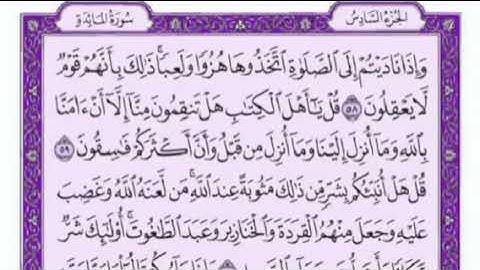 الجزء السادس
سورة المائدة
وَإِذَا نَادَيْتُمْ إِلَى ٱلصَّلَوٰةِ ٱتَّخَذُوهَا هُزُوًا وَلَعِبًا ۚ ذَٰلِكَ بِأَنَّهُمْ قَوْمٌ
لَّا يَعْقِلُونَ ٥٨ قُلْ يَٰٓأَهْلَ ٱلْكِتَٰبِ هَلْ تَنقِمُونَ مِنَّآ إِلَّآ أَنْ ءَامَنَّا
بِٱللَّهِ وَمَآ أُنزِلَ إِلَيْنَا وَمَآ أُنزِلَ مِن قَبْلُ وَأَنَّ أَكْثَرَكُمْ فَٰسِقُونَ ٥٩
قُلْ هَلْ أُنَبِّئُكُم بِشَرٍّ مِّن ذَٰلِكَ مَثُوبَةً عِندَ ٱللَّهِ ۚ مَن لَّعَنَهُ ٱللَّهُ وَغَضِبَ
عَلَيْهِ وَجَعَلَ مِنْهُمُ ٱلْقِرَدَةَ وَٱلْخَنَازِيرَ وَعَبَدَ ٱلطَّٰغُوتَ ۚ أُو۟لَٰٓئِكَ شَرٌّ